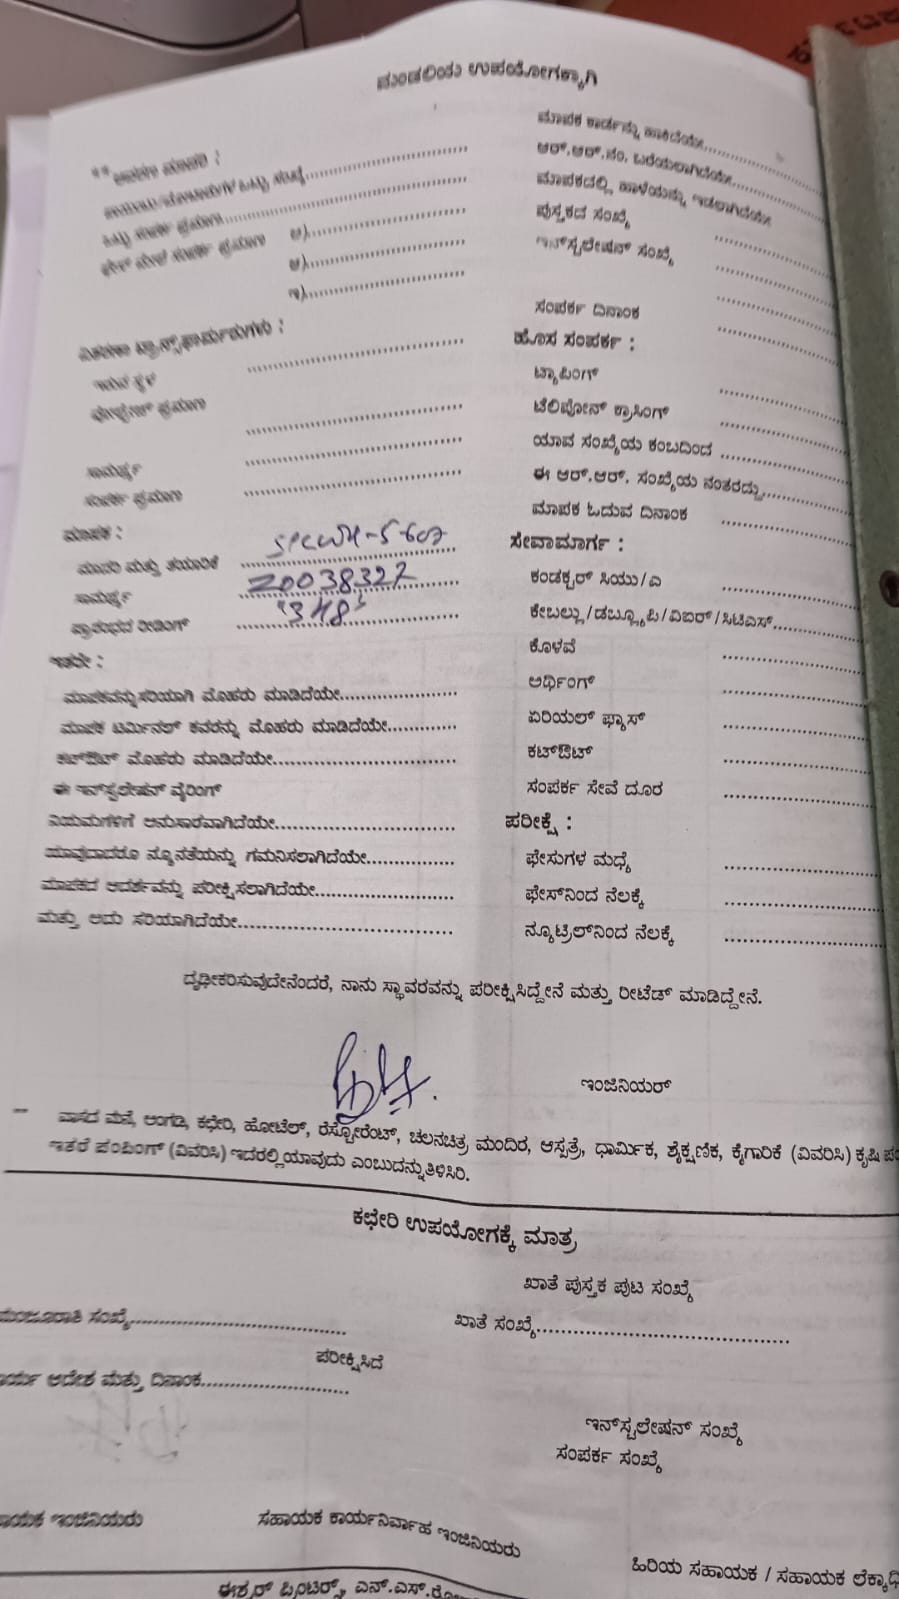 ಮಂಡಲಿಯ ಉಪಯೋಗಕ್ಕಾಗಿ
ಒಟ್ಟು ಸಂಪರ್ಕ ಪ್ರಮಾಣ..............................
ಅ)....................
ಆ)....................
ಇ)....................
ಇರುವ ಸ್ಥಳ ..............................
ಸಾಮರ್ಥ್ಯ ..............................
ಸಂಪರ್ಕ ಪ್ರಮಾಣ ..............................
ಮಾಪಕ :
ಮಾದರಿ ಮತ್ತು ತಯಾರಿಕೆ
ಸಾಮರ್ಥ್ಯ 20038327
ಪ್ರಾರಂಭದ ರೀಡಿಂಗ್ 348
ಇತರೇ :
ಮಾಪಕವನ್ನು ಸರಿಯಾಗಿ ಮೊಹರು ಮಾಡಿದೆಯೇ....................
ಮಾಪಕ ಟರ್ಮಿನಲ್ ಕವರನ್ನು ಮೊಹರು ಮಾಡಿದೆಯೇ............
ಕಟ್‌ಔಟ್ ಮೊಹರು ಮಾಡಿದೆಯೇ..............................
ಈ ಇನ್‌ಸ್ಟಲೇಷನ್ ವೈರಿಂಗ್
ನಿಯಮಗಳಿಗೆ ಅನುಸಾರವಾಗಿದೆಯೇ..............................
ಯಾವುದಾದರೂ ನ್ಯೂನತೆಯನ್ನು ಗಮನಿಸಲಾಗಿದೆಯೇ...............
ಮಾಪಕದ ಆದರ್ಶವನ್ನು ಪರೀಕ್ಷಿಸಲಾಗಿದೆಯೇ....................
ಮತ್ತು ಅದು ಸರಿಯಾಗಿದೆಯೇ...................................
ಮಾಪಕ ಕಾರ್ಡನ್ನು ಹಾಕಿದೆಯೇ....................
ಆರ್.ಆರ್.ನಂ. ಬರೆಯಲಾಗಿದೆಯೇ...............
ಮಾಪಕದಲ್ಲಿ ಹಾಳೆಯನ್ನು ಇಡಲಾಗಿದೆಯೇ
ಪುಸ್ತಕದ ಸಂಖ್ಯೆ ....................
ಇನ್‌ಸ್ಟಲೇಷನ್ ಸಂಖ್ಯೆ ....................
ಸಂಪರ್ಕ ದಿನಾಂಕ ....................
ಹೊಸ ಸಂಪರ್ಕ :
ಟ್ಯಾಪಿಂಗ್ ....................
ಟೆಲಿಪೋನ್ ಕ್ರಾಸಿಂಗ್ ....................
ಯಾವ ಸಂಖ್ಯೆಯ ಕಂಬದಿಂದ ....................
ಈ ಆರ್.ಆರ್. ಸಂಖ್ಯೆಯ ನಂತರದ್ದು...............
ಮಾಪಕ ಓದುವ ದಿನಾಂಕ ....................
ಸೇವಾಮಾರ್ಗ :
ಕಂಡಕ್ಟರ್ ಸಿಯು/ಎ ....................
ಕೇಬಲ್ಲು/ಡಬ್ಲ್ಯೂಪಿ/ವಿಐರ್/ಸಿಟಿಎಸ್...............
ಕೊಳವೆ ....................
ಅರ್ಥಿಂಗ್ ....................
ಏರಿಯಲ್ ಫ್ಯೂಸ್ ....................
ಕಟ್‌ಔಟ್ ....................
ಸಂಪರ್ಕ ಸೇವೆ ದೂರ ....................
ಪರೀಕ್ಷೆ :
ಫೇಸುಗಳ ಮಧ್ಯೆ ....................
ಫೇಸ್‌ನಿಂದ ನೆಲಕ್ಕೆ ....................
ನ್ಯೂಟ್ರಲ್‌ನಿಂದ ನೆಲಕ್ಕೆ ....................
ದೃಢೀಕರಿಸುವುದೇನೆಂದರೆ, ನಾನು ಸ್ಥಾವರವನ್ನು ಪರೀಕ್ಷಿಸಿದ್ದೇನೆ ಮತ್ತು ರೀಟೆಡ್ ಮಾಡಿದ್ದೇನೆ.
ಇಂಜಿನಿಯರ್
** ವಾಸದ ಮನೆ, ಅಂಗಡಿ, ಕಛೇರಿ, ಹೋಟೆಲ್, ರೆಸ್ಟೋರೆಂಟ್, ಚಲನಚಿತ್ರ ಮಂದಿರ, ಆಸ್ಪತ್ರೆ, ಧಾರ್ಮಿಕ, ಶೈಕ್ಷಣಿಕ, ಕೈಗಾರಿಕೆ (ವಿವರಿಸಿ) ಕೃಷಿ
ಇತರೆ ಪಂಪಿಂಗ್ (ವಿವರಿಸಿ) ಇದರಲ್ಲಿ ಯಾವುದು ಎಂಬುದನ್ನು ತಿಳಿಸಿರಿ.
ಕಛೇರಿ ಉಪಯೋಗಕ್ಕೆ ಮಾತ್ರ
ಖಾತೆ ಪುಸ್ತಕ ಪುಟ ಸಂಖ್ಯೆ
ಮಂಜೂರಾತಿ ಸಂಖ್ಯೆ................................... ಖಾತೆ ಸಂಖ್ಯೆ........................................
ಪರೀಕ್ಷಿಸಿದೆ
ಆದೇಶ ಮತ್ತು ದಿನಾಂಕ.........................
ಇನ್‌ಸ್ಟಲೇಷನ್ ಸಂಖ್ಯೆ
ಸಂಪರ್ಕ ಸಂಖ್ಯೆ
ಇಂಜಿನಿಯರು ಸಹಾಯಕ ಕಾರ್ಯನಿರ್ವಾಹ ಇಂಜಿನಿಯರು
ಹಿರಿಯ ಸಹಾಯಕ / ಸಹಾಯಕ
ಈಶ್ವರ್ ಪ್ರಿಂಟರ್ಸ್, ಎನ್.ಎಸ್.